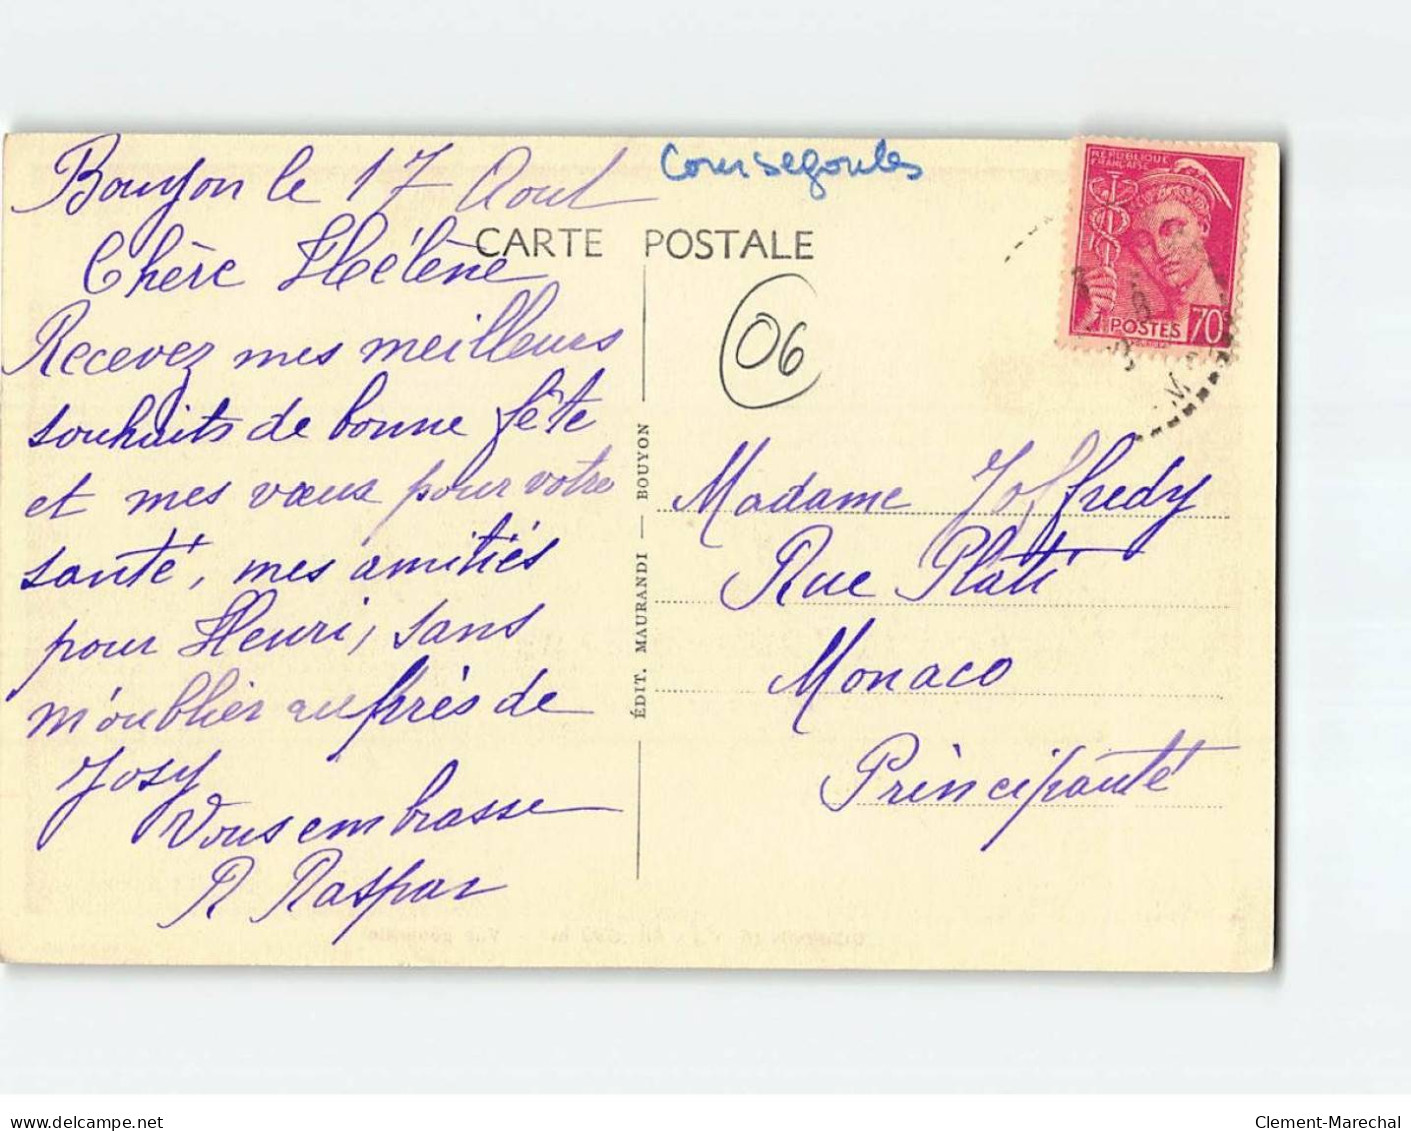 Bouyon le 17 Aout
Coursegoules
CARTE POSTALE
Chère Hélène
Recevez mes meilleurs
souhaits de bonne fête
et mes vœux pour votre
santé, mes amitiés
pour Henri, sans
m'oublier auprès de
Josy
Vous embrasse
R Raspar
06
ÉDIT. MAURANDI — BOUYON
RÉPUBLIQUE
FRANÇAISE
POSTES 70
Madame Joffredy
Rue Plati
Monaco
Principauté
delcampe.net
Clement-Marechal